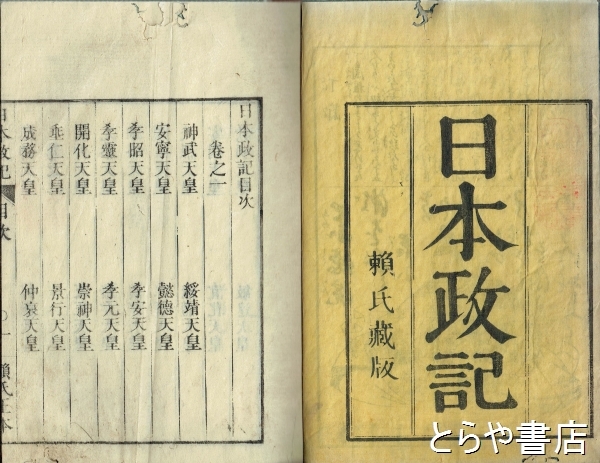 日本政記
賴氏藏版
日本政記目次
卷之一
神武天皇 綏靖天皇
安寧天皇 懿德天皇
孝昭天皇 孝安天皇
孝靈天皇 孝元天皇
開化天皇 崇神天皇
垂仁天皇 景行天皇
成務天皇 仲哀天皇
日本政記 目次 ○一 賴氏正本
とらや書店